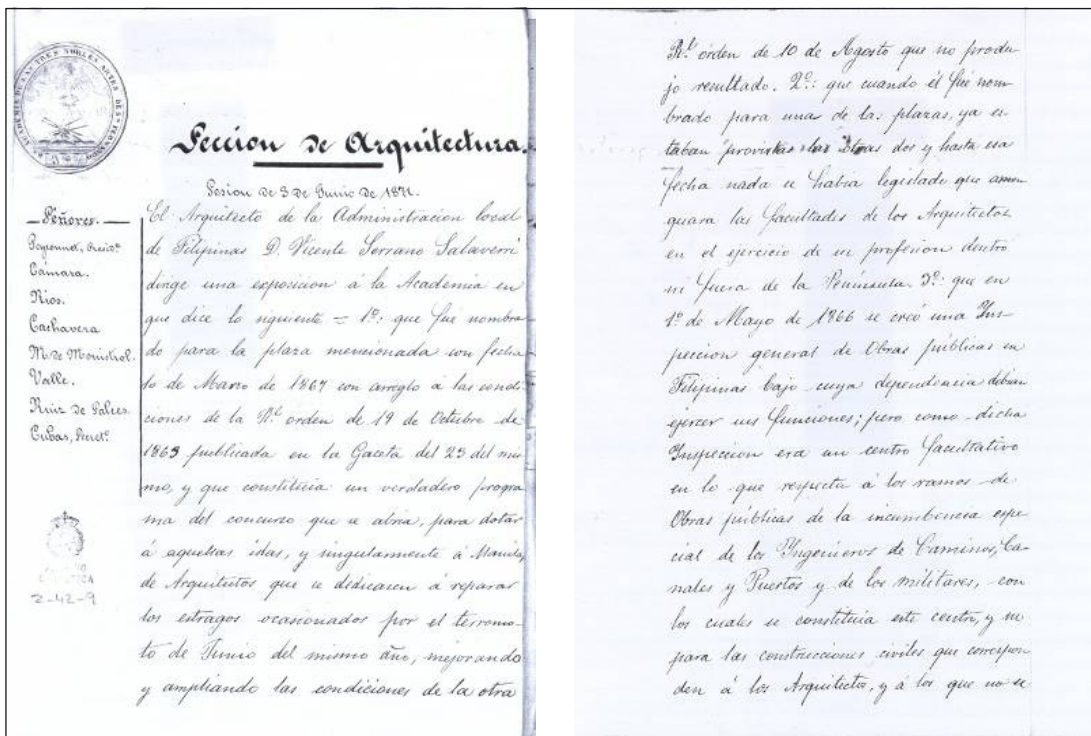 ACADEMIA DE LAS TRES NOBLES ARTES DE S. FERNANDO
Seccion de Arquitectura.
Sesion de 3 de Junio de 1871.
Señores.
Peyronnet, Presid.te
Cámara.
Rios.
Cachavera
M. de Monistrol.
Valle.
Ruiz de Salces.
Cubas, Secret.º
El Arquitecto de la Administracion local
de Filipinas D. Vicente Serrano Salaverri
dirige una exposicion á la Academia en
que dice lo siguiente = 1º: que fue nombra
do para la plaza mencionada con fecha
de Marzo de 1867 con arreglo á las condi
ciones de la Rl. orden de 19 de Octubre de
1863 publicada en la Gaceta del 25 del mis
mo, y que constituia un verdadero progra
ma del concurso que se abria, para dotar
á aquellas islas, y singularmente á Manila,
de Arquitectos que se dedicasen á reparar
los estragos ocasionados por el terremo-
to de Junio del mismo año, mejorando
y ampliando las condiciones de la otra
2-42-9
Rl. orden de 10 de Agosto que no produ-
jo resultado. 2º: que cuando él fué nom-
brado para una de las plazas, ya es
taban provistas las otras dos y hasta esa
fecha nada se habia legislado que amen
guara las facultades de los Arquitectos
en el ejercicio de su profesion dentro
ni fuera de la Peninsula. 3º: que en
1º de Mayo de 1866 se creó una Ins-
peccion general de Obras públicas en
Filipinas bajo cuya dependencia debian
ejercer sus funciones; pero como dicha
Inspeccion era un centro facultativo
en lo que respecta á los ramos de
Obras públicas de la incumbencia espe-
cial de los Ingenieros de Caminos, Ca-
nales y Puertos y de los militares, con
los cuales se constituia este centro, y no
para las construcciones civiles que correspon
den á los Arquitectos, y á los que no se